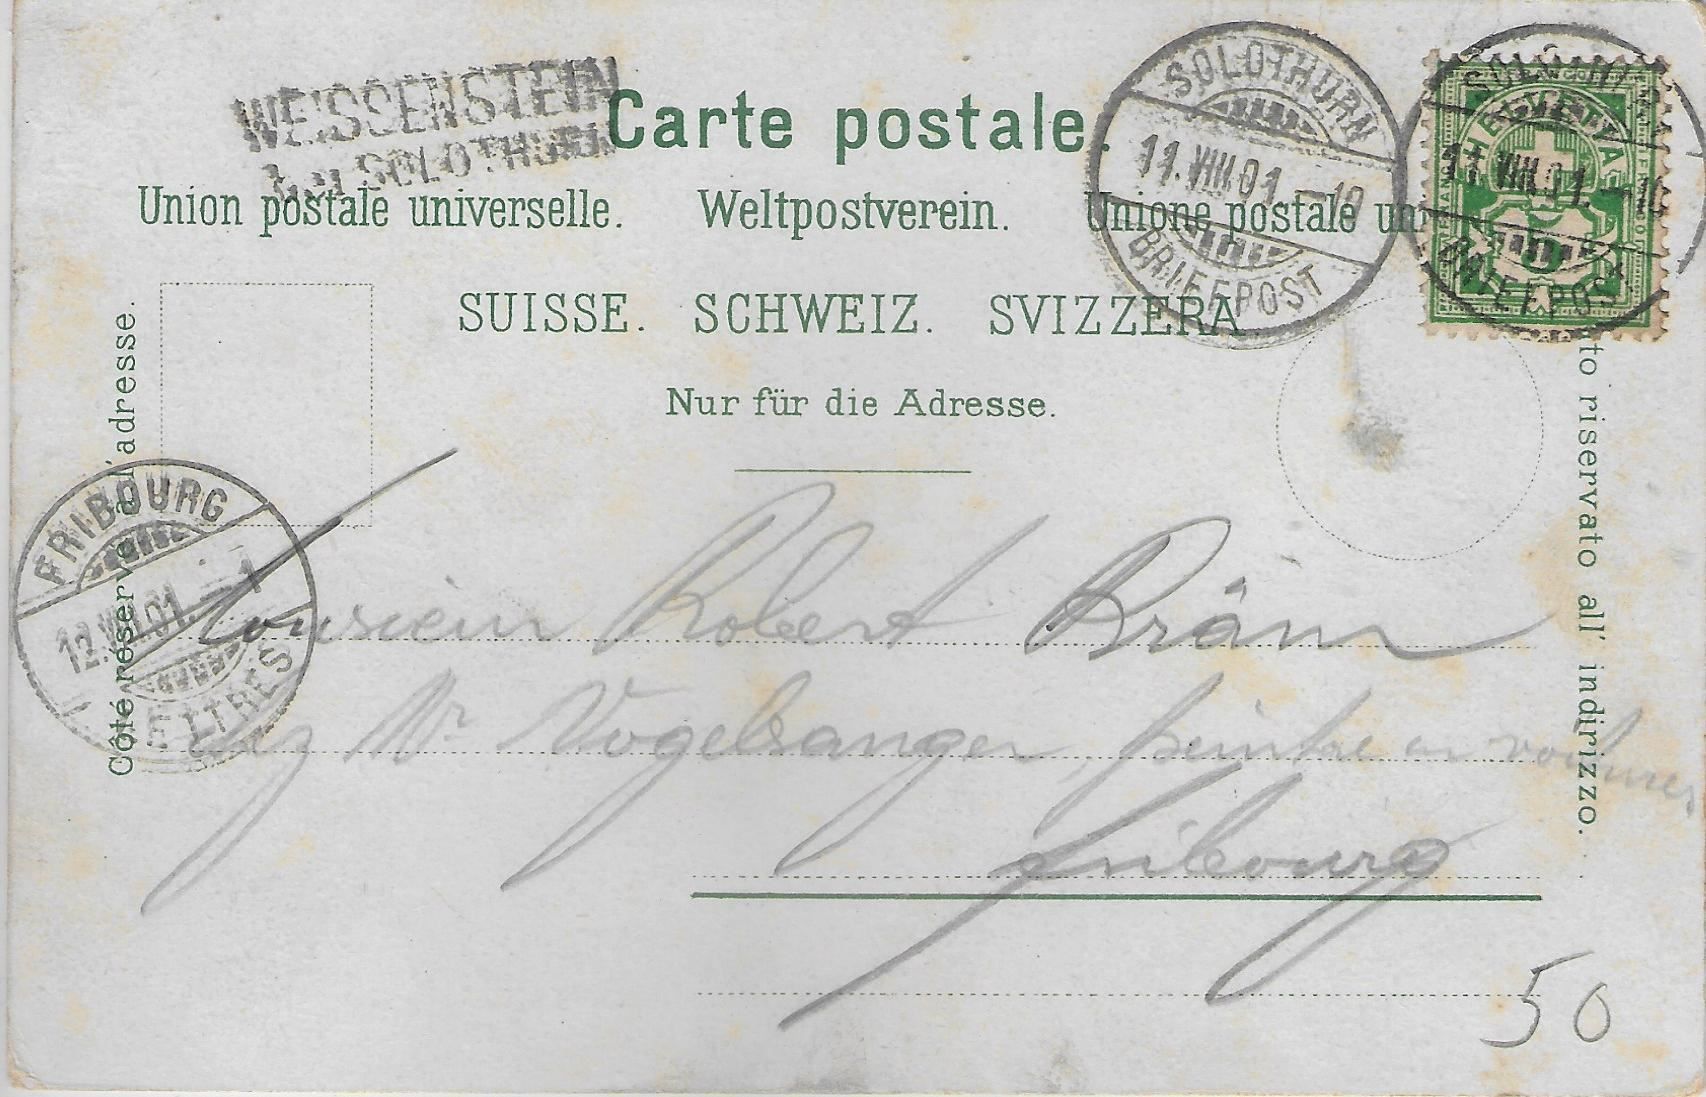 WEISSENSTEIN
bei SOLOTHURN
Carte postale.
Union postale universelle. Weltpostverein. Unione postale uni
SUISSE. SCHWEIZ. SVIZZERA
Nur für die Adresse.
Côté réservé à l'adresse.
to riservato all' indirizzo.
SOLOTHURN
11.VIII.01.-10
BRIEFPOST
SOLOTHURN
11.VIII.01.-10
BRIEFPOST
HELVETIA
5
FRIBOURG
12.VIII.01.-1
LETTRES
Monsieur Robert Bräm
chez Mr Vogelsanger, peintre en voitures
Fribourg
50